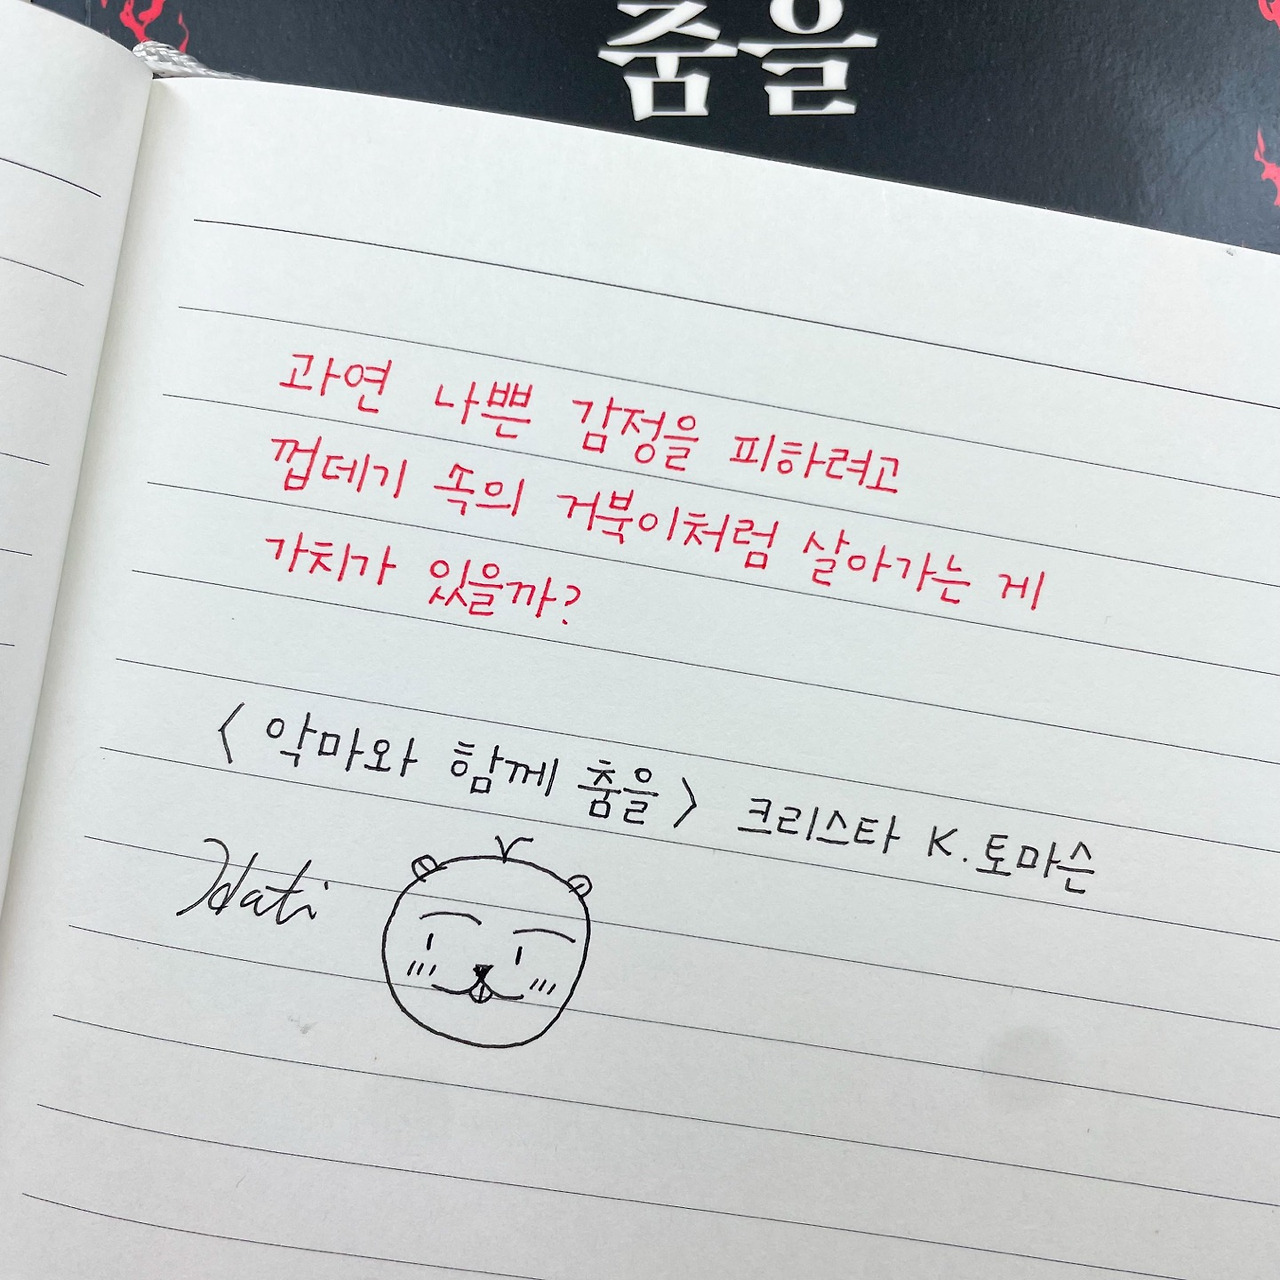 춤을
과연 나쁜 감정을 피하려고
껍데기 속의 거북이처럼 살아가는 게
가치가 있을까?
< 악마와 함께 춤을 > 크리스타 K. 토마슨
Hati